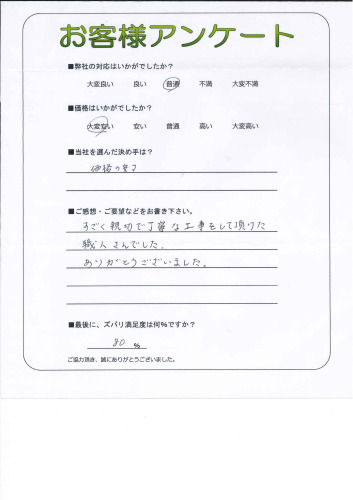 お客様アンケート
■弊社の対応はいかがでしたか?
大変良い 良い 普通 不満 大変不満
■価格はいかがでしたか?
大変安い 安い 普通 高い 大変高い
■当社を選んだ決め手は?
価格の安さ
■ご感想・ご要望などをお書き下さい。
すごく親切で丁寧な工事をして頂けた
職人さんでした。
ありがとうございました。
■最後に、ズバリ満足度は何%ですか?
80 %
ご協力頂き、誠にありがとうございました。